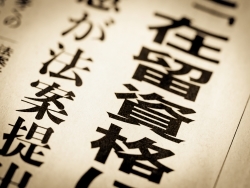 在留資格に
が法案提出